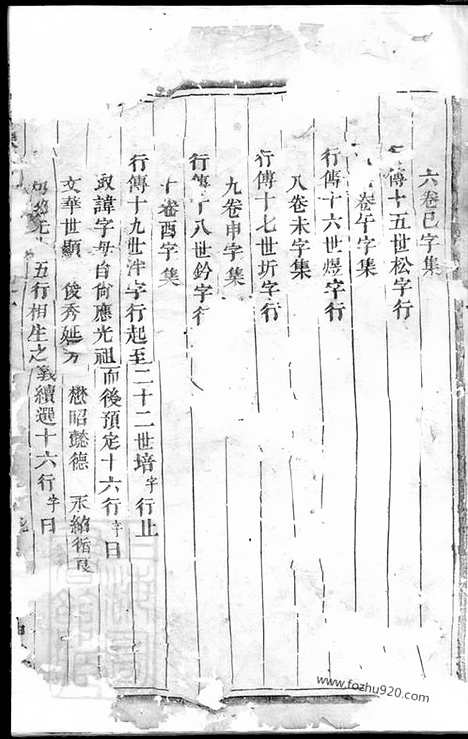 六卷巳字集
傳十五世松字行
卷午字集
行傳十六世煜字行
八卷未字集
行傳十七世圻字行
九卷申字集
行傳十八世鈐字行
十卷酉字集
行傳十九世泮字行起至二十二世培字行止
取諱字母自尙應光祖而後預定十六行字曰
文華世顯 俊秀延芳 懋昭懿德 永紹循良
五行相生之義續選十六行字曰
www.fozhu920.com